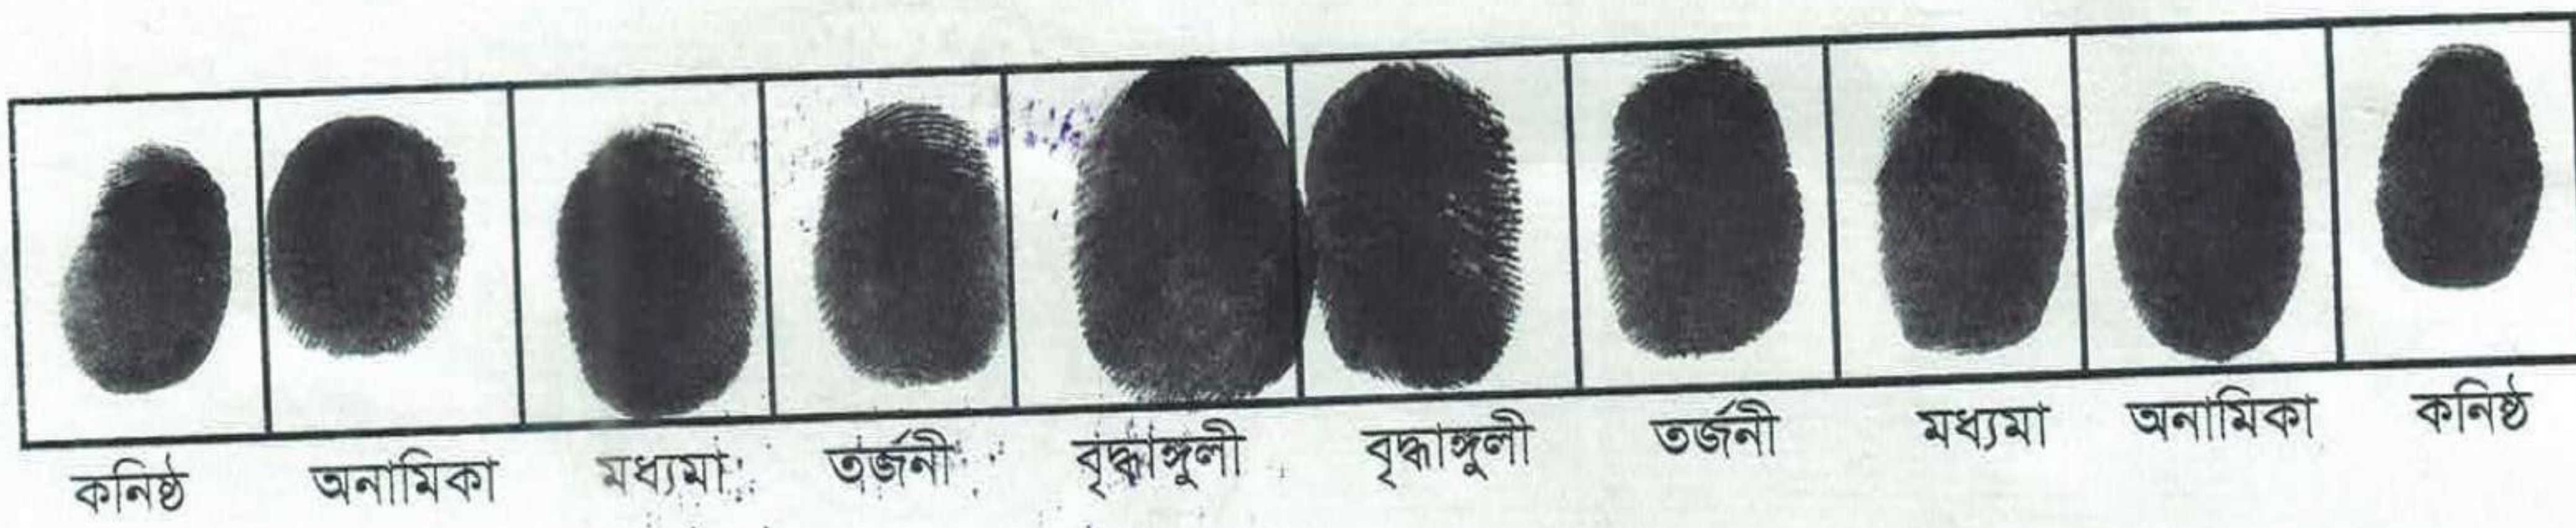 কনিষ্ঠ অনামিকা মধ্যমা তর্জনী বৃদ্ধাঙ্গুলী বৃদ্ধাঙ্গুলী তর্জনী মধ্যমা অনামিকা কনিষ্ঠ